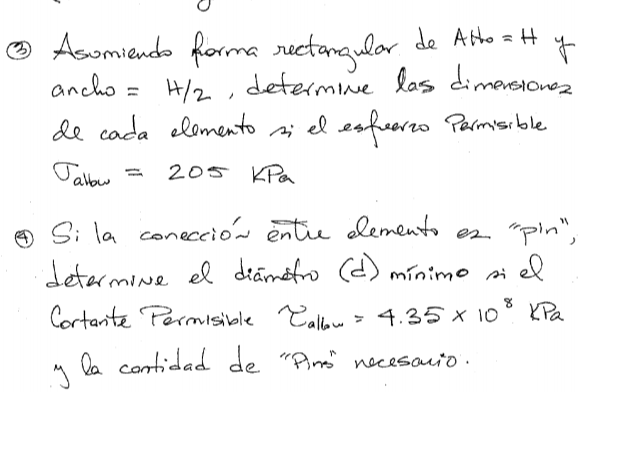 ③ Asumiendo forma rectangular de Alto = H y
ancho = H/2, determine las dimensiones
de cada elemento si el esfuerzo Permisible
σallow = 205 KPa
④ Si la conección entre elemento es "pin",
determine el diámetro (d) mínimo si el
Cortante Permisible τallow = 4.35 x 10⁸ KPa
y la cantidad de "Pins" necesario.